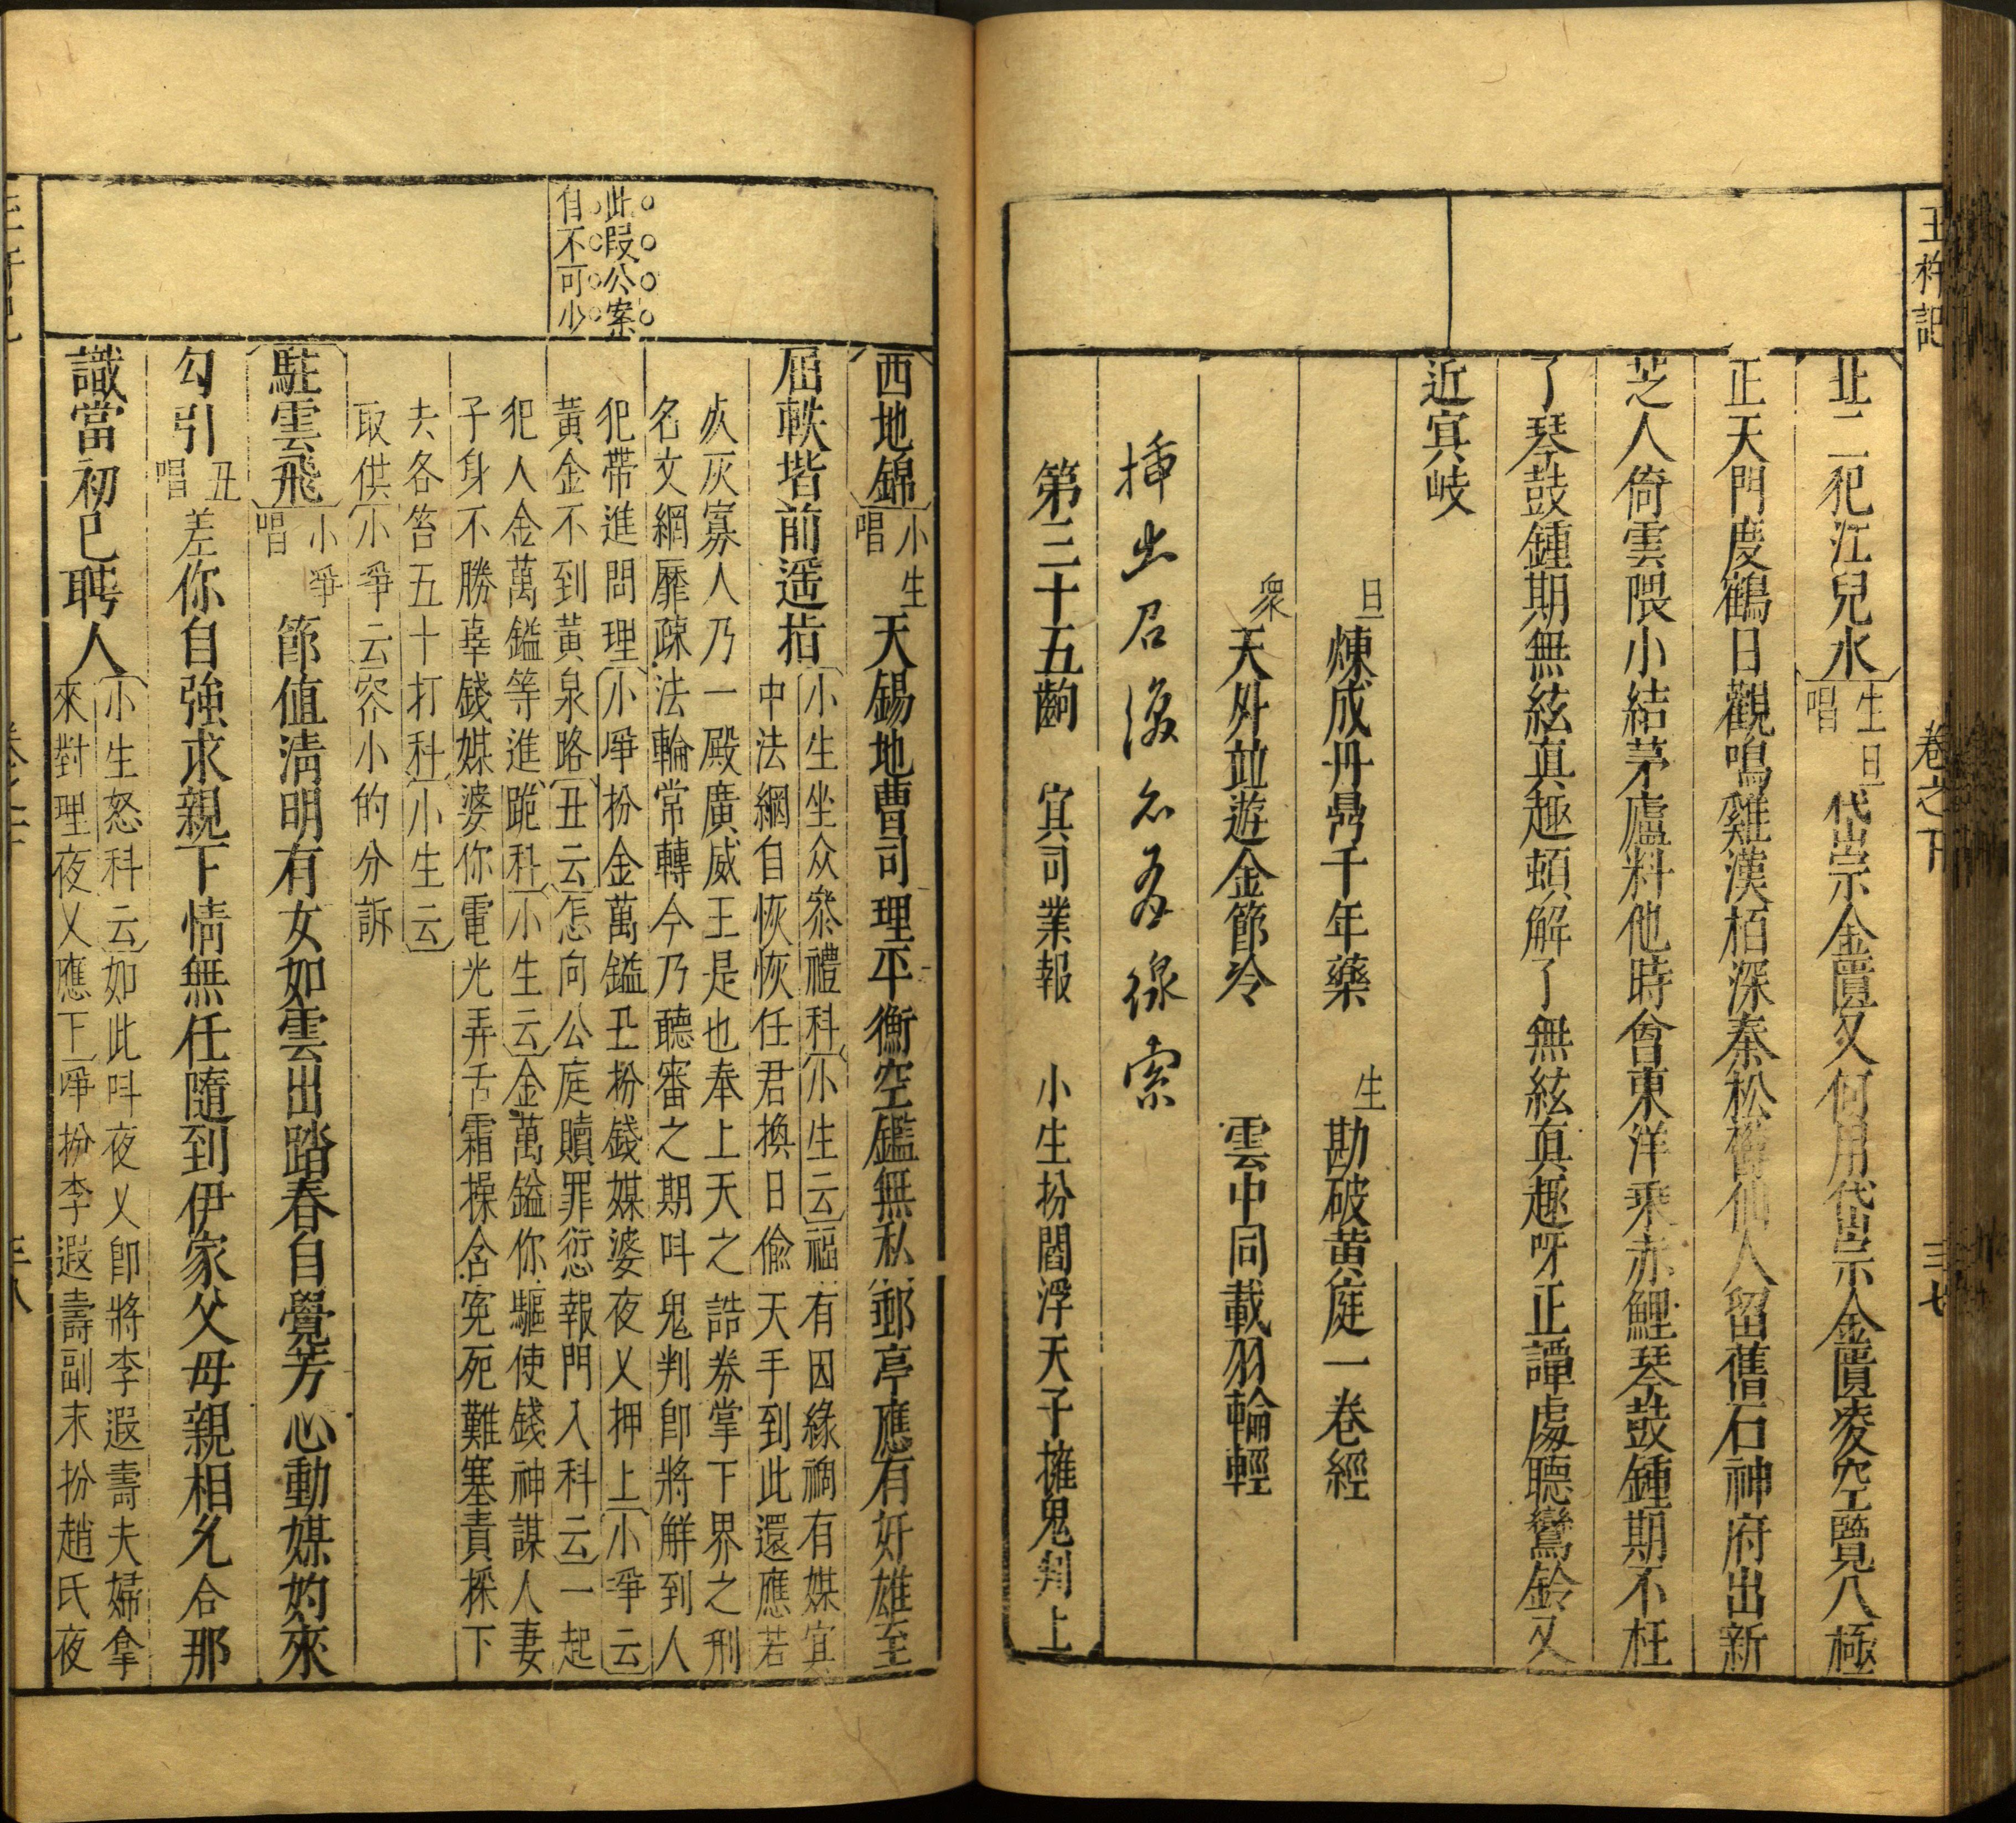 玉杵記
卷之下
三七
北二犯江兒水 生旦唱 岱宗金匱又何用岱宗金匱凌空覽八極
正天門慶鶴日觀鳴雞漢栢深秦松舊仙人留舊石神府出新
芝人倚雲隈小結茅廬料他時會東洋乘赤鯉琴鼓鍾期不枉
了琴鼓鍾期無絃真趣頓解了無絃真趣呀正譚處聽鸞鈴又
近寘岐
旦 煉成丹鼎千年藥 生 勘破黄庭一卷經
衆 天外並遊金節冷 雲中同載羽輪輕
揷出君後
第三十五齣 寘司業報 小生扮閻浮天子擁鬼判上
此叚公案
自不可少
西地錦 小生唱 天錫地曹司理平衡空鑑無私郵亭應有奸雄至
屈軼堦前遥指 小生坐众叅禮科 小生云 福有因緣禍有媒冝
中法網自恢恢任君換日偷天手到此還應若
灰寡人乃一殿廣威王是也奉上天之誥券掌下界之刑
名文網靡疎法輪常轉今乃聽審之期呌鬼判卽將解到人
犯帶進問理 小爭扮金萬鎰丑扮錢媒婆夜乂押上 小爭云
黃金不到黃泉路 丑云 怎向公庭贖罪愆報門入科云 一起
犯人金萬鎰等進 跪科 小生云 金萬鎰你驅使錢神謀人妻
子身不勝辜錢媒婆你電光弄舌霜操含寃死難塞責採下
去各笞五十打科 小生云
取供 小爭云 容小的分訴
駐雲飛 小爭唱 節值淸明有女如雲出踏春自覺芳心動媒妁來
勾引 丑唱 差你自強求親下情無任隨到伊家父母親相允合那
識當初已聘人 小生怒科云 如此呌夜乂卽將李遐壽夫婦拿
來對理夜乂應下 爭扮李遐壽副末扮趙氏夜